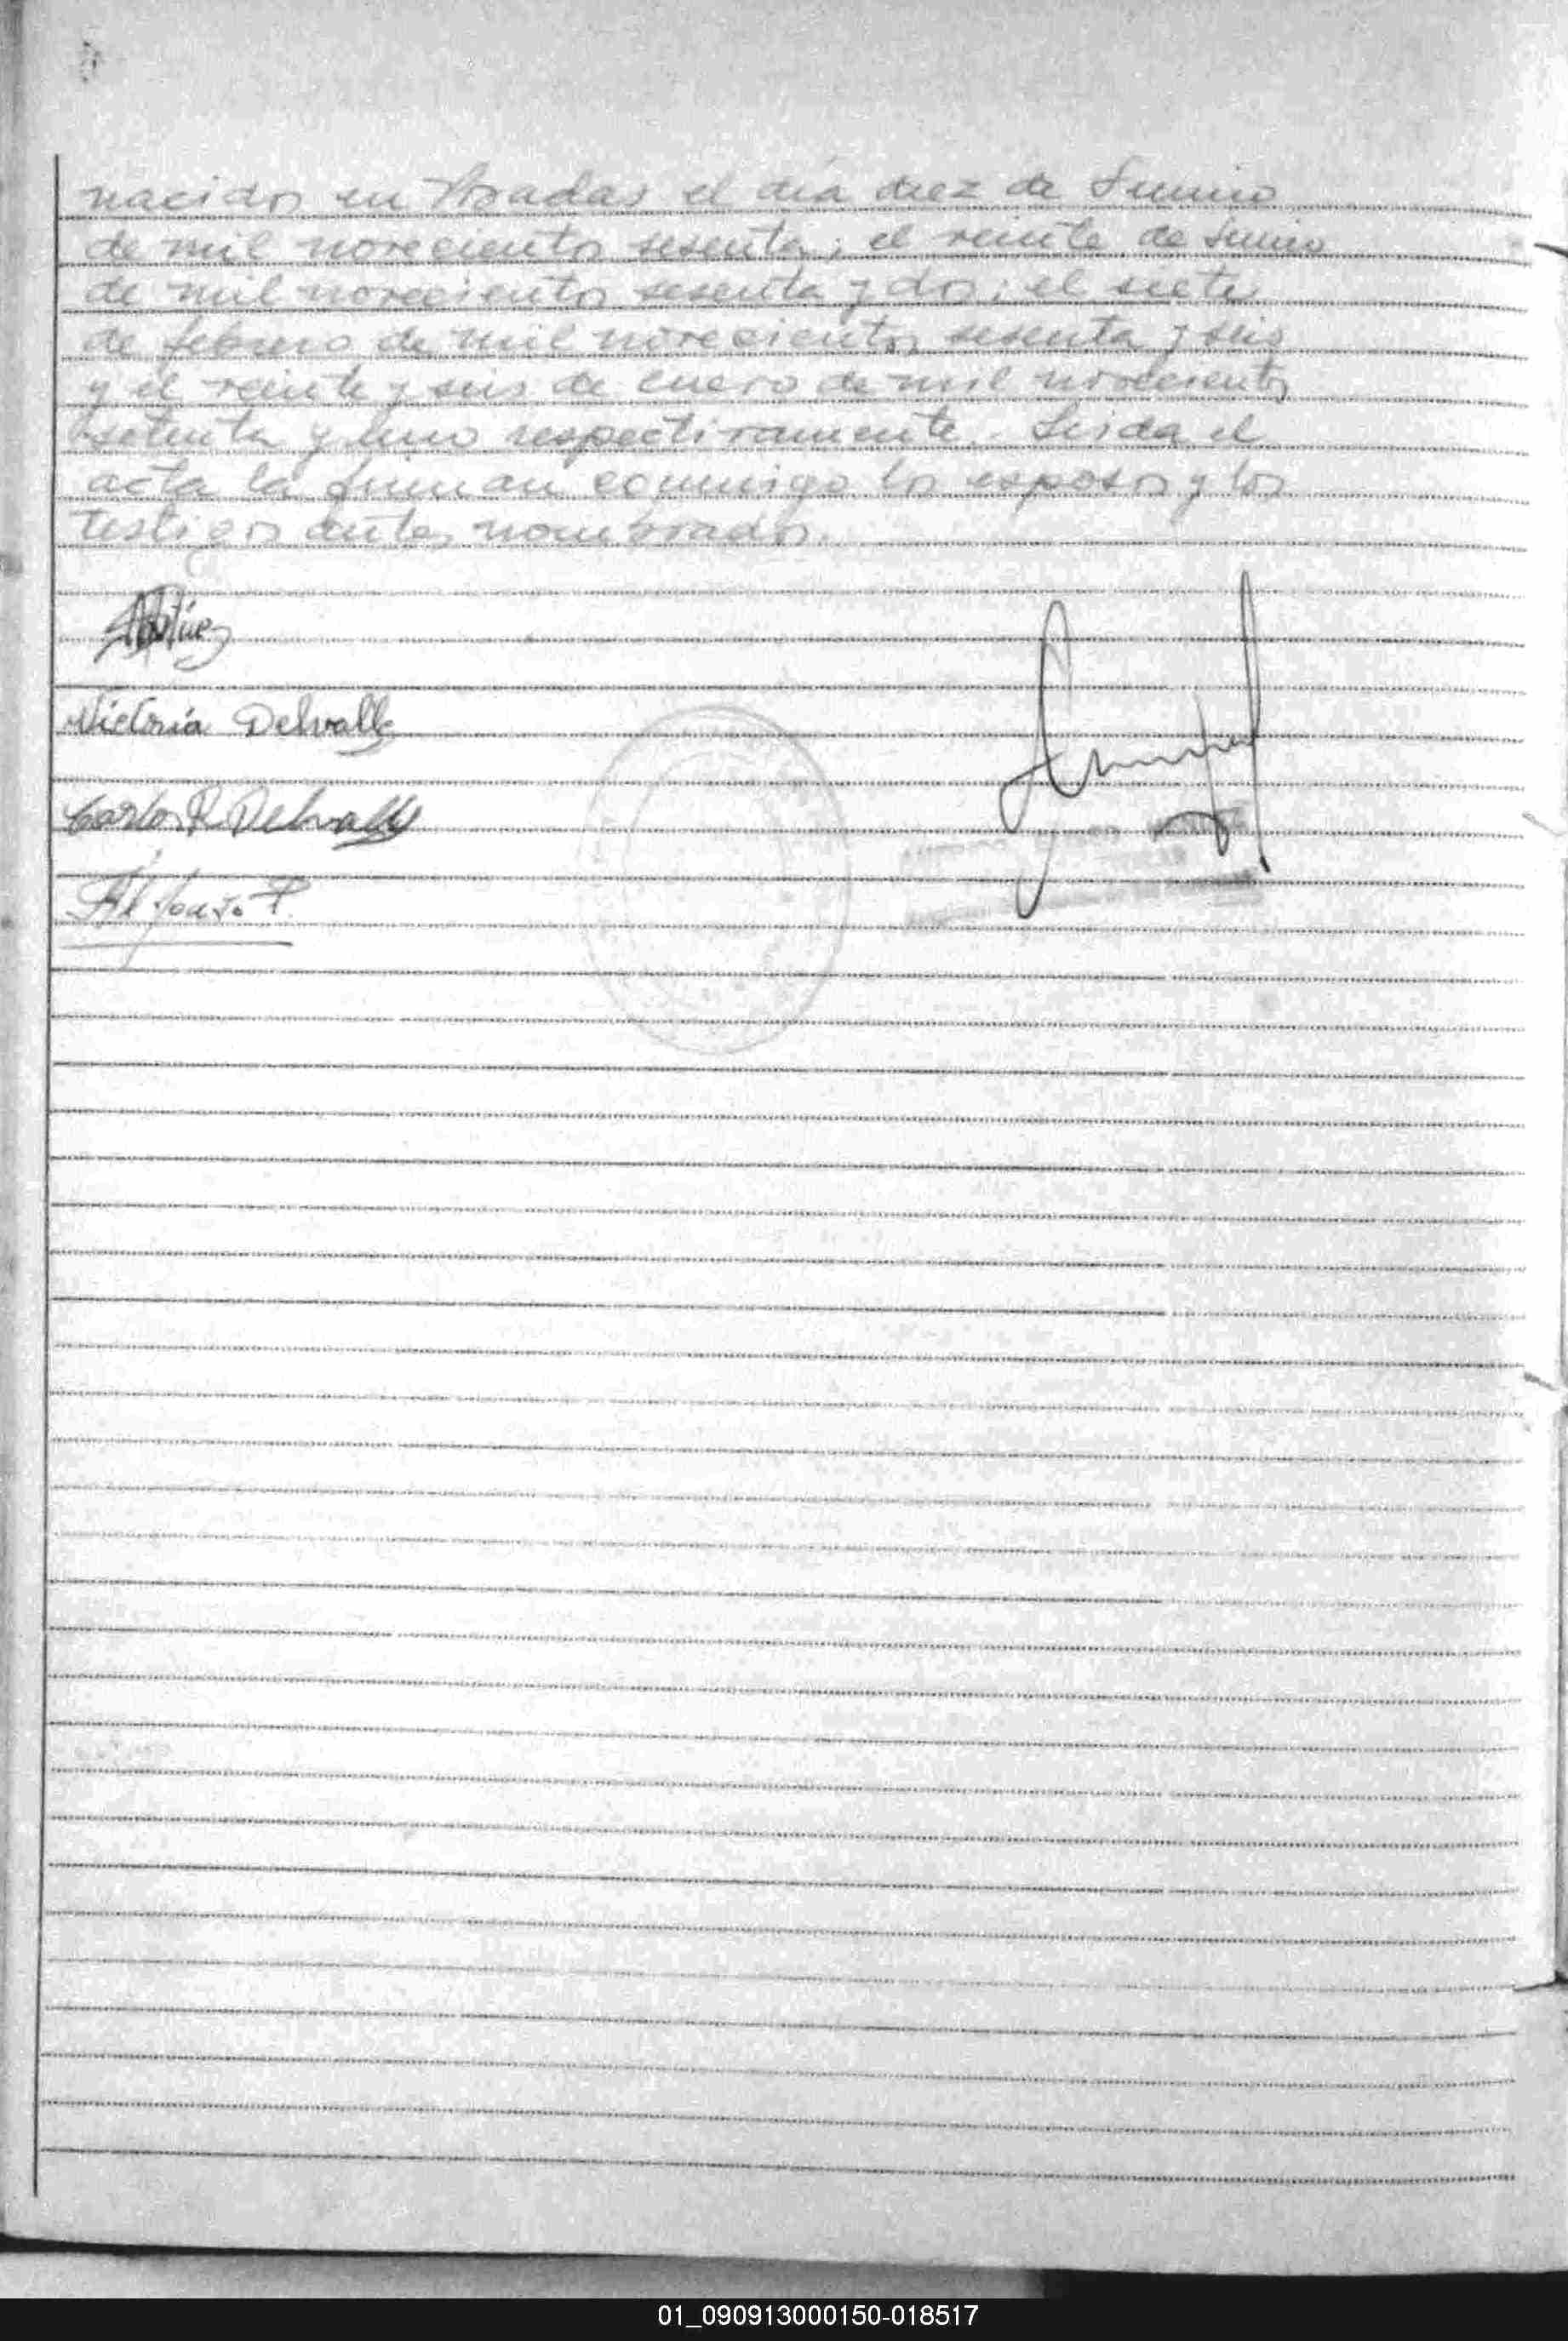 nacidos en Posadas el día diez de Junio
de mil novecientos sesenta; el veinte de Junio
de mil novecientos sesenta y dos; el siete
de febrero de mil novecientos sesenta y seis
y el veinte y seis de enero de mil novecientos
setenta y uno respectivamente. Leida el
acta la firman conmigo los esposos y los
testigos antes nombrados.
Victoria Delvalle
Carlos R Delvalle
01_090913000150-018517